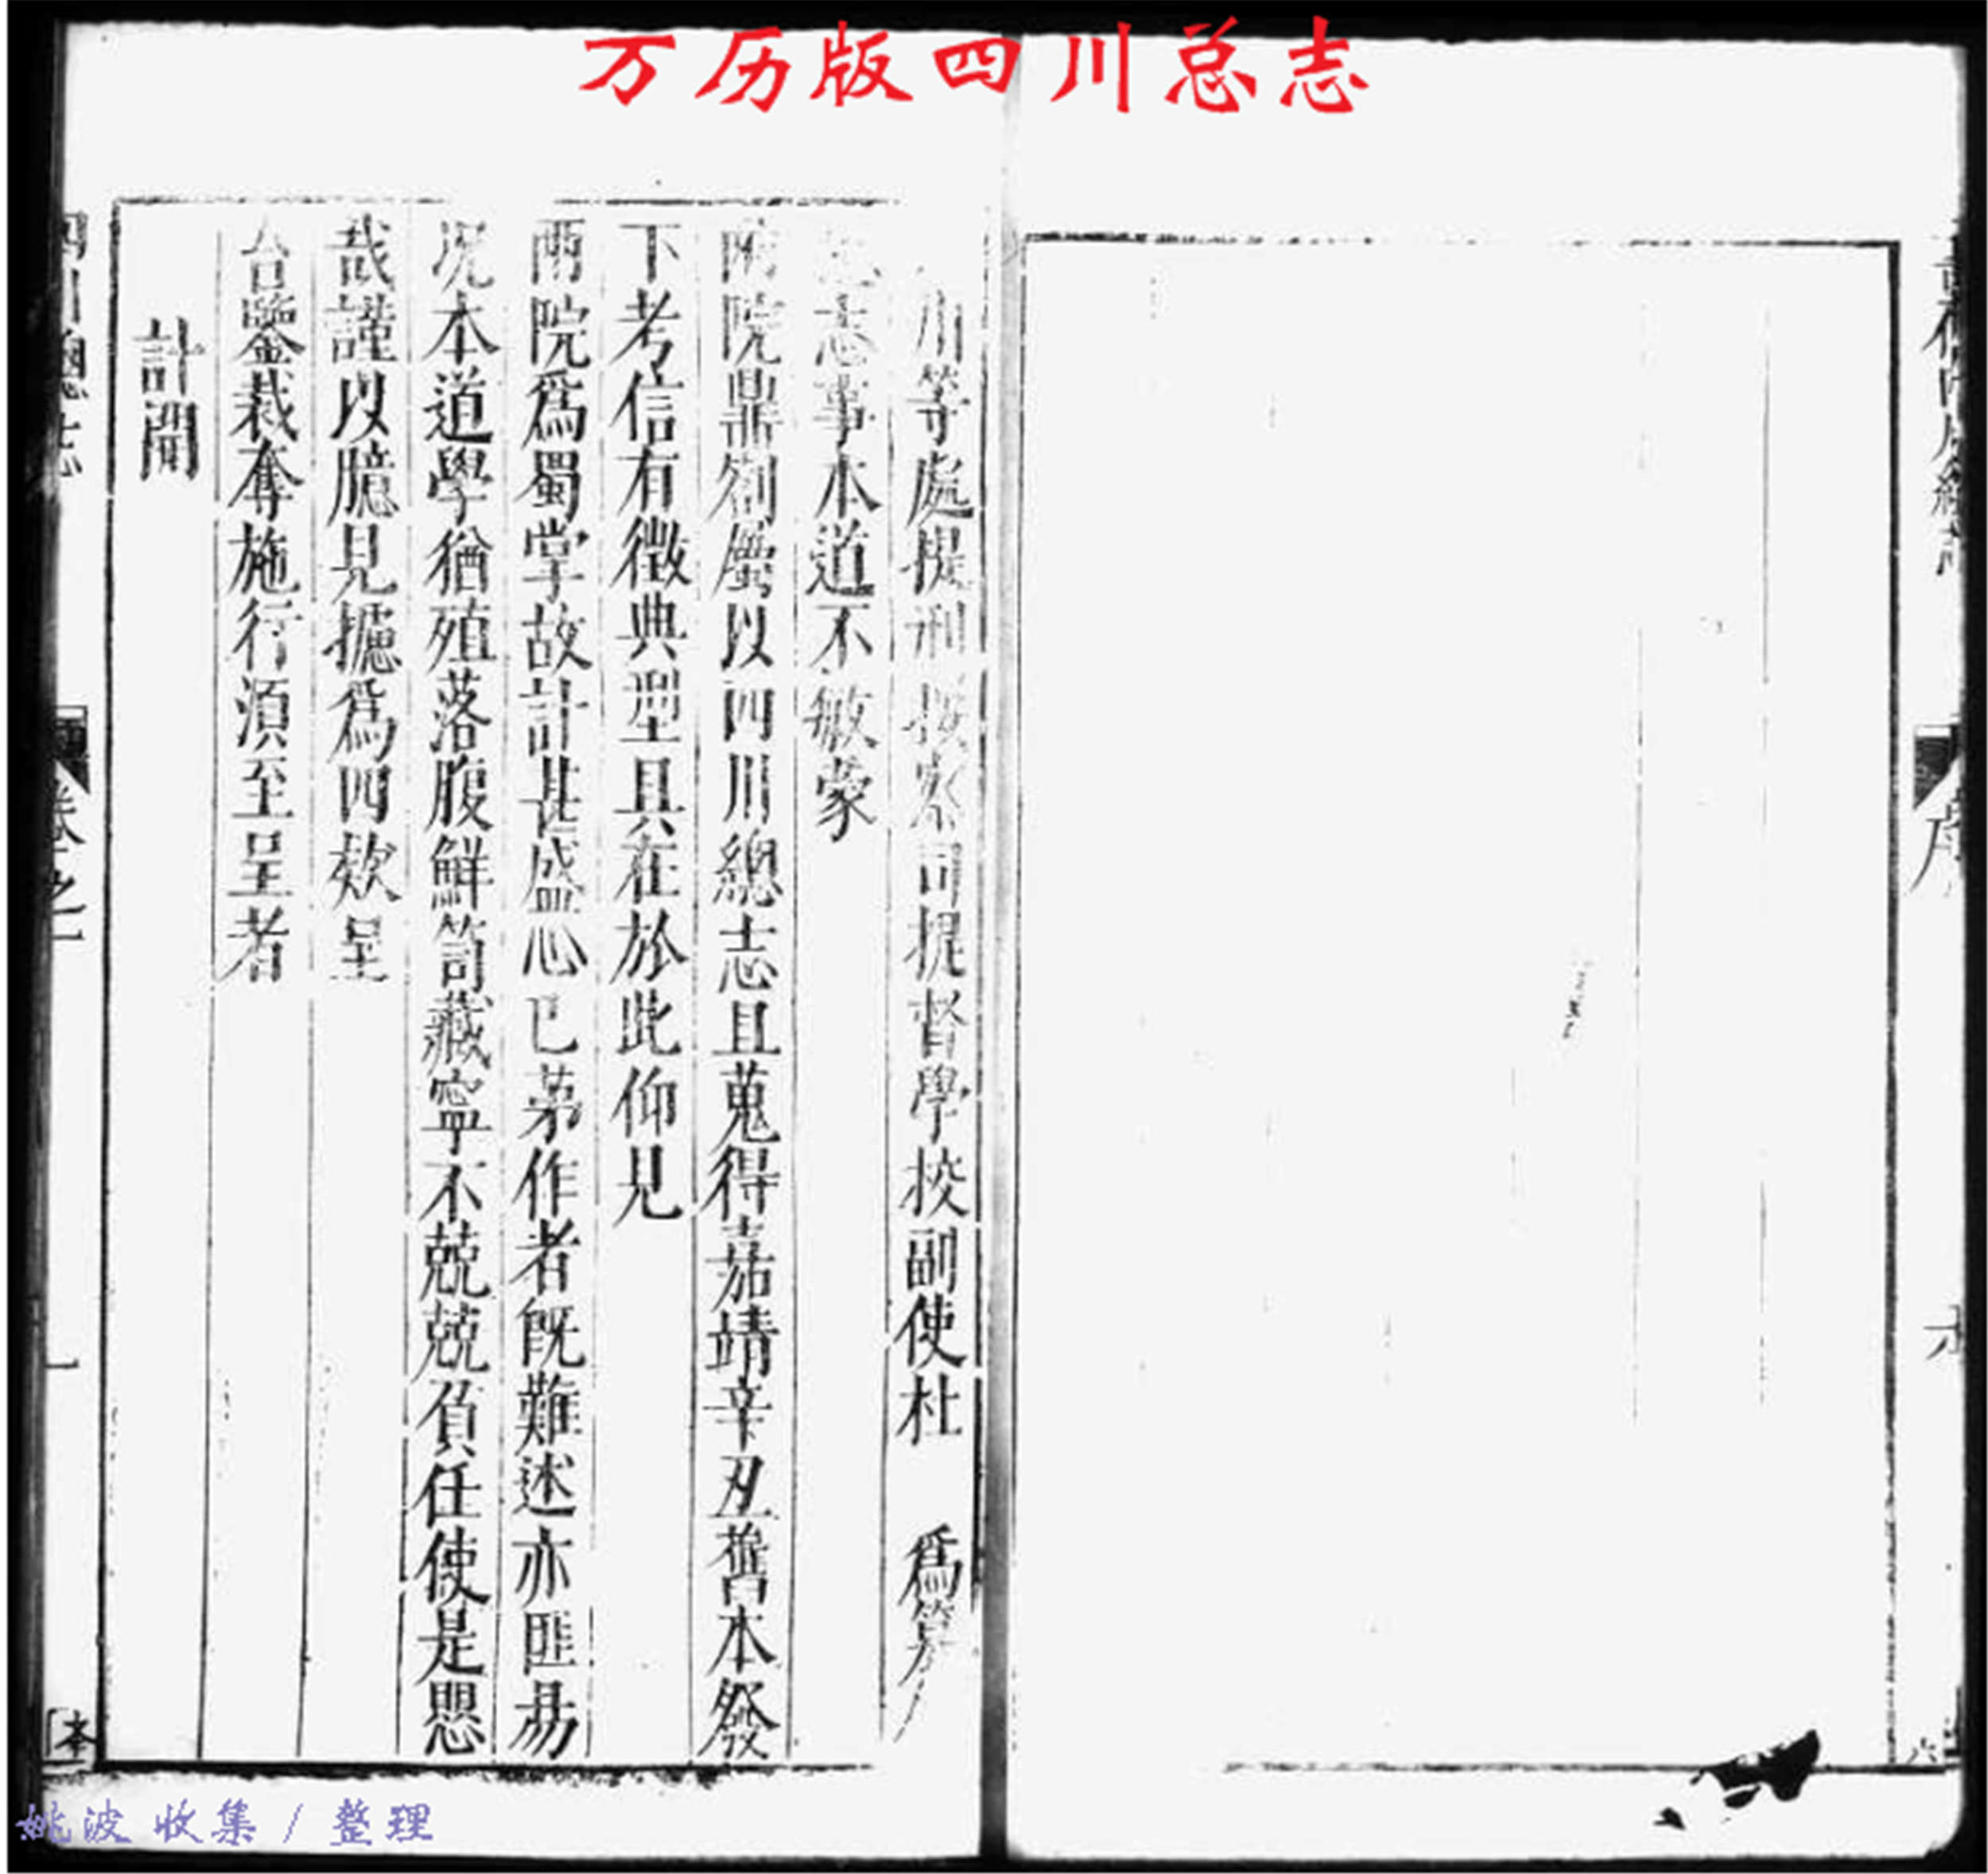 万历版四川总志
序
六
川等處提刑按察司提督學校副使杜　為纂
志事本道不敏蒙
兩院鼎劄屬以四川總志且蒐得嘉靖辛丑舊本發
下考信有徵典型具在於此仰見
兩院爲蜀掌故計甚盛心已苐作者既難述亦匪昜
况本道學猶殖落腹鮮笥藏寧不兢兢負任使是愳
哉謹以臆見攄爲四欵呈
台鑒裁奪施行湏至呈者
計開
四川總志
卷之一
一
本
姚波 收集 / 整理